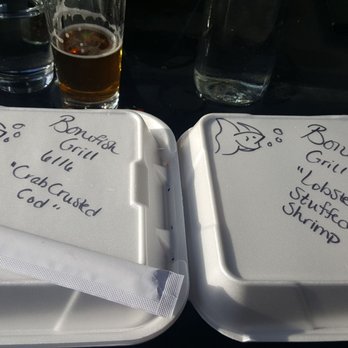 Bonefish
Grill
6/16
"Crab Crusted
Cod"
Bon
Grill
"Lobste
Stuffed
Shrimp